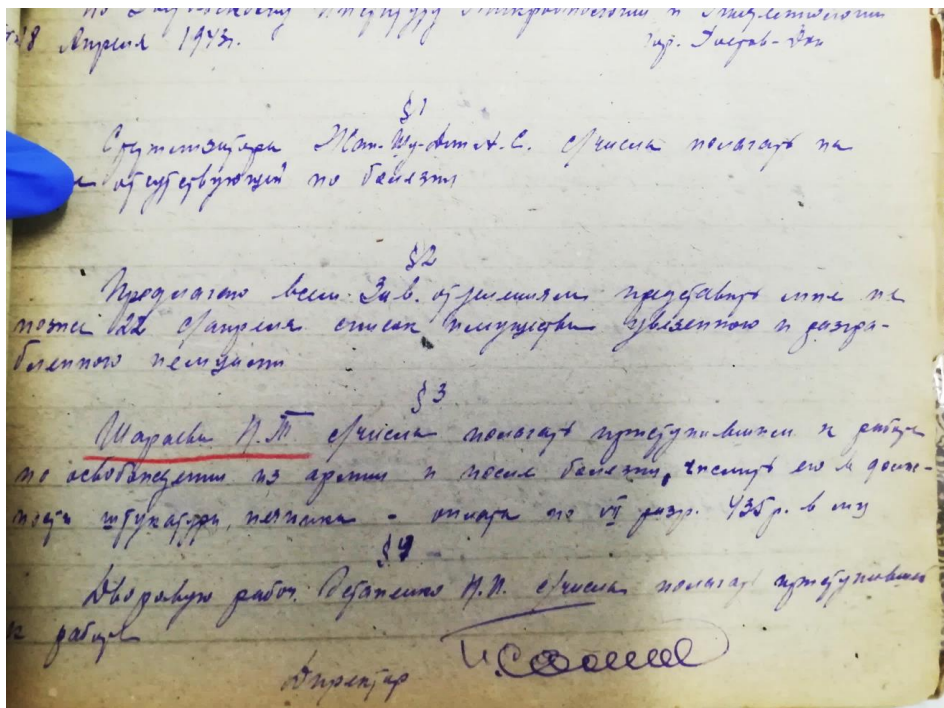 по Институту Микробиологии и Эпидемиологии
18 Апреля 1943г. гор. Ростов-Дон
§1
с/числа полагать не
отсутствующей по болезни
§2
Предлагаю всем Зав. отделениям представить мне не
позже 22 с/апреля список имущества увезенного и разгра-
бленного немцами
§3
Шараева Н.Т. с/числа полагать приступившим к работе
по освобождении из армии и после болезни, числить его в долж-
ности штукатура, печника - оплата по VII разр. 435р. в м-ц
§4
Дворовую рабоч. Н.П. с/числа полагать приступившей
к работе
Директор